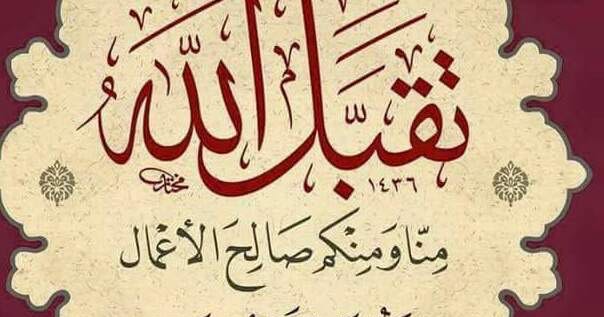 تَقَبَّلَ اللهُ
١٤٣٦
مِنَّا وَمِنْكُم صَالِحَ الأَعْمَال